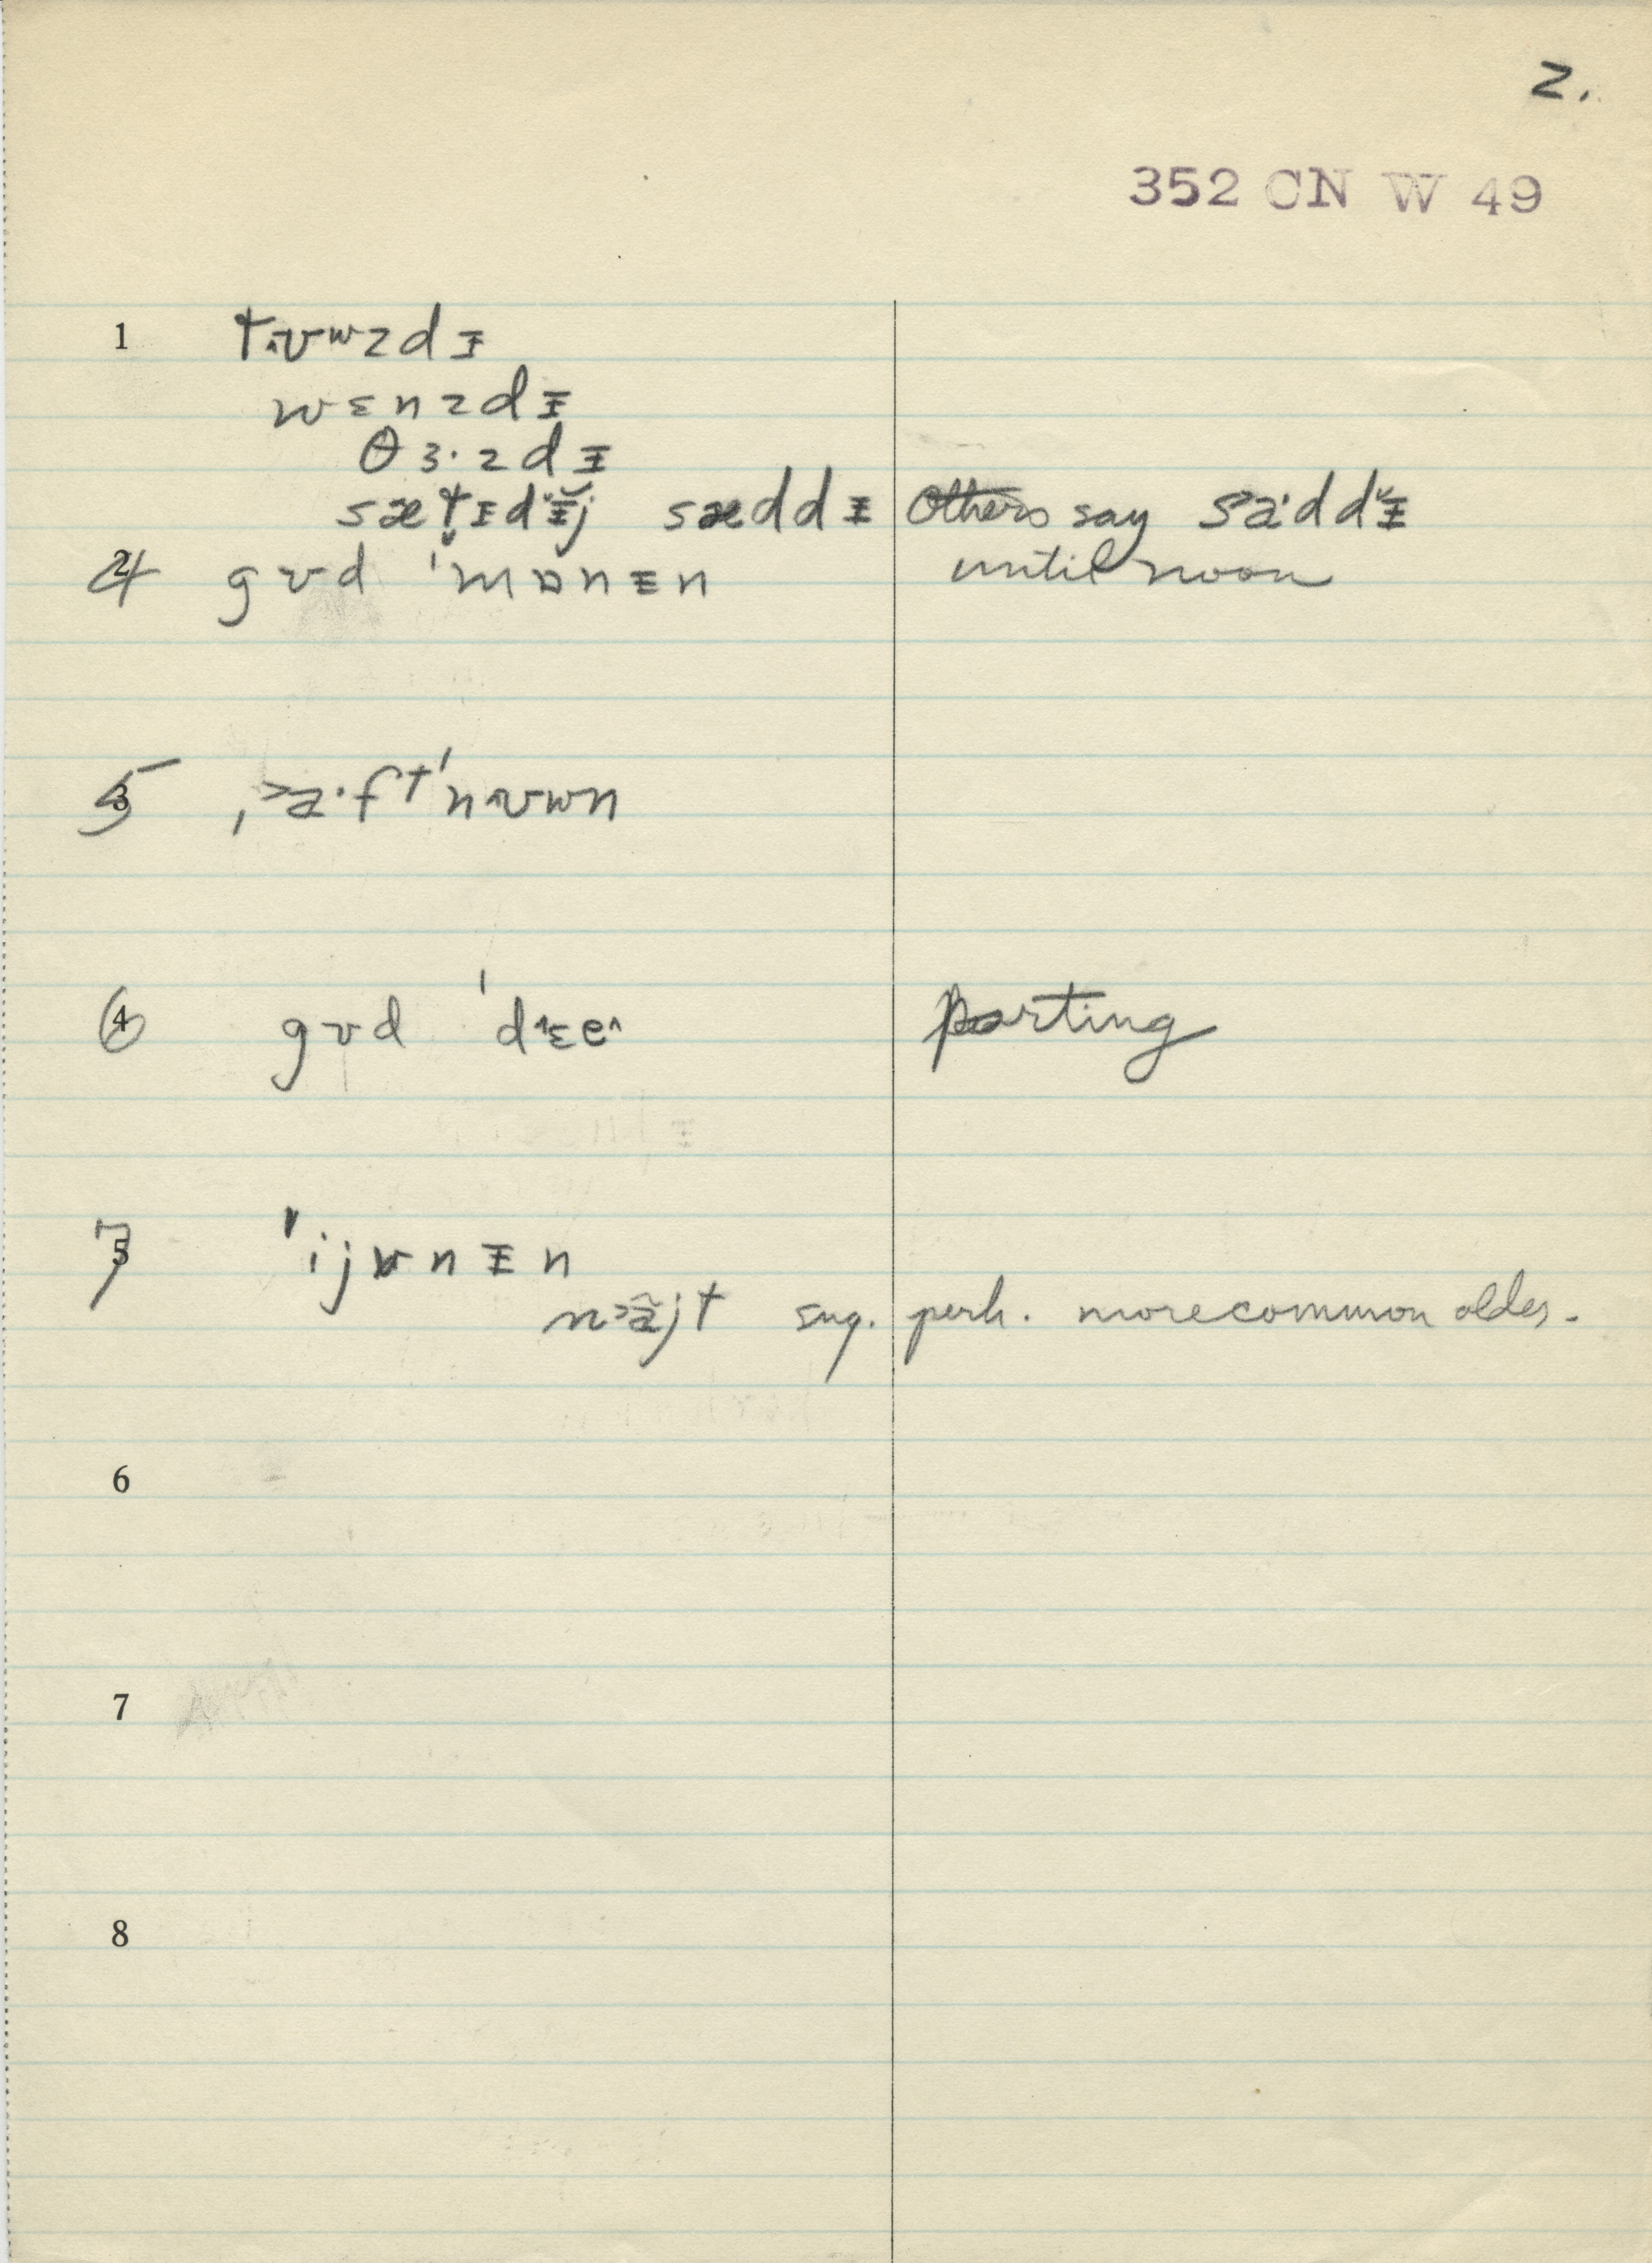 2.
352 CN W 49
1 tʊwzdɪ
wɛnzdɪ
θɜ·zdɪ
sætɪdɪj sæddɪ others say sa·ddɪ
4 gʊd ˈmɒnɪn until noon
5 ˌa·ftˈnʊwn
6 gʊd ˈdɛe parting
7 ˈijvnɪn
najt sug. perh. more common older.
6
7
8